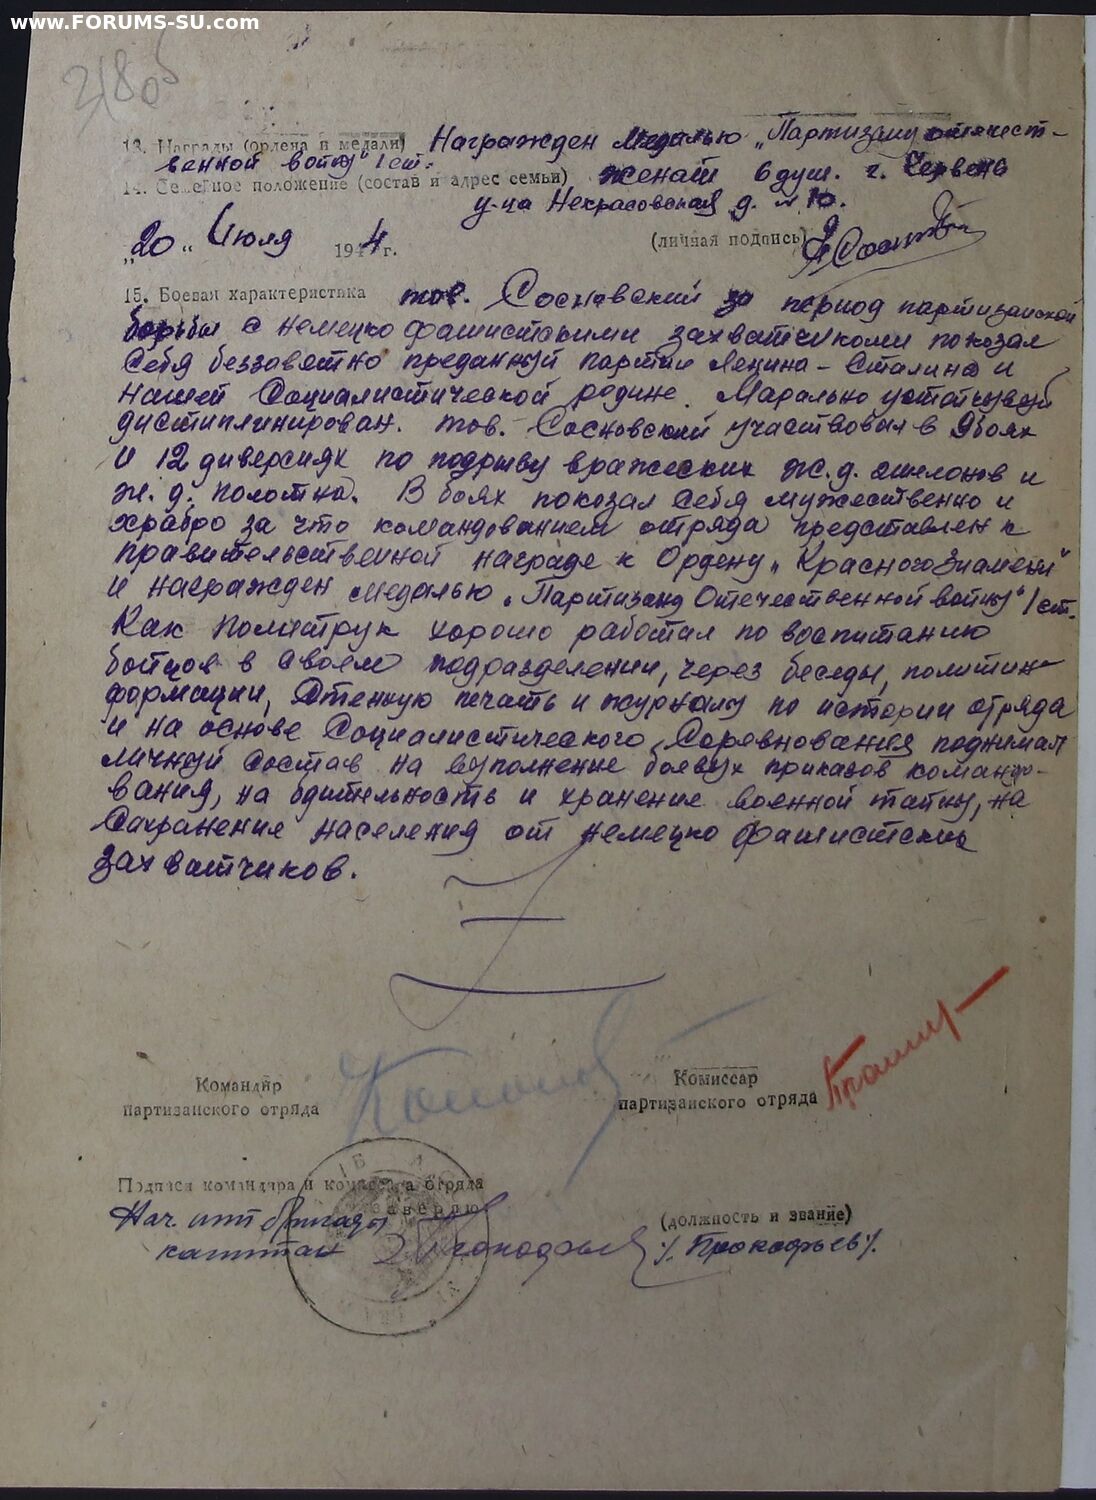 www.FORUMS-SU.com
13. Награды (ордена и медали) Награжден медалью „Партизану отечест-
венной войны" I ст.
14. Семейное положение (состав и адрес семьи) женат 6 душ. г. Червень
у-ца Некрасовская д. № 10.
„20" Июля 1944 г. (личная подпись)
15. Боевая характеристика тов. Сосновский за период партизанской
борьбы с немецко фашистскими захватчиками показал
себя беззаветно преданный партии Ленина - Сталина и
нашей Социалистической родине. Марально устойчевый
дистиплинирован. тов. Сосновский участвовал в 9 боях
и 12 диверсиях по подрыву вражеских ж.д. эшелонов и
ж.д. полотна. В боях показал себя мужественно и
храбро за что командованием отряда представлен к
правительственной награде к Ордену „Красного Знамени"
и награжден медалью „Партизану Отечественной войны" I ст.
Как политрук хорошо работал по воспитанию
бойцов в своем подразделении, через беседы, политин-
формации, стенную печать и журналу по истории отряда
и на основе Социалистического Соревнования поднимал
личный состав на выполнение боевых приказов командо-
вания, на бдительность и хранение военной тайны, на
сохранение населения от немецко фашистских
захватчиков.
Командир
партизанского отряда
Комиссар
партизанского отряда
Подписи командира и комиссара отряда
заверяю
Нач. шт бригады
капитан
(должность и звание)
/Прокофьев/.